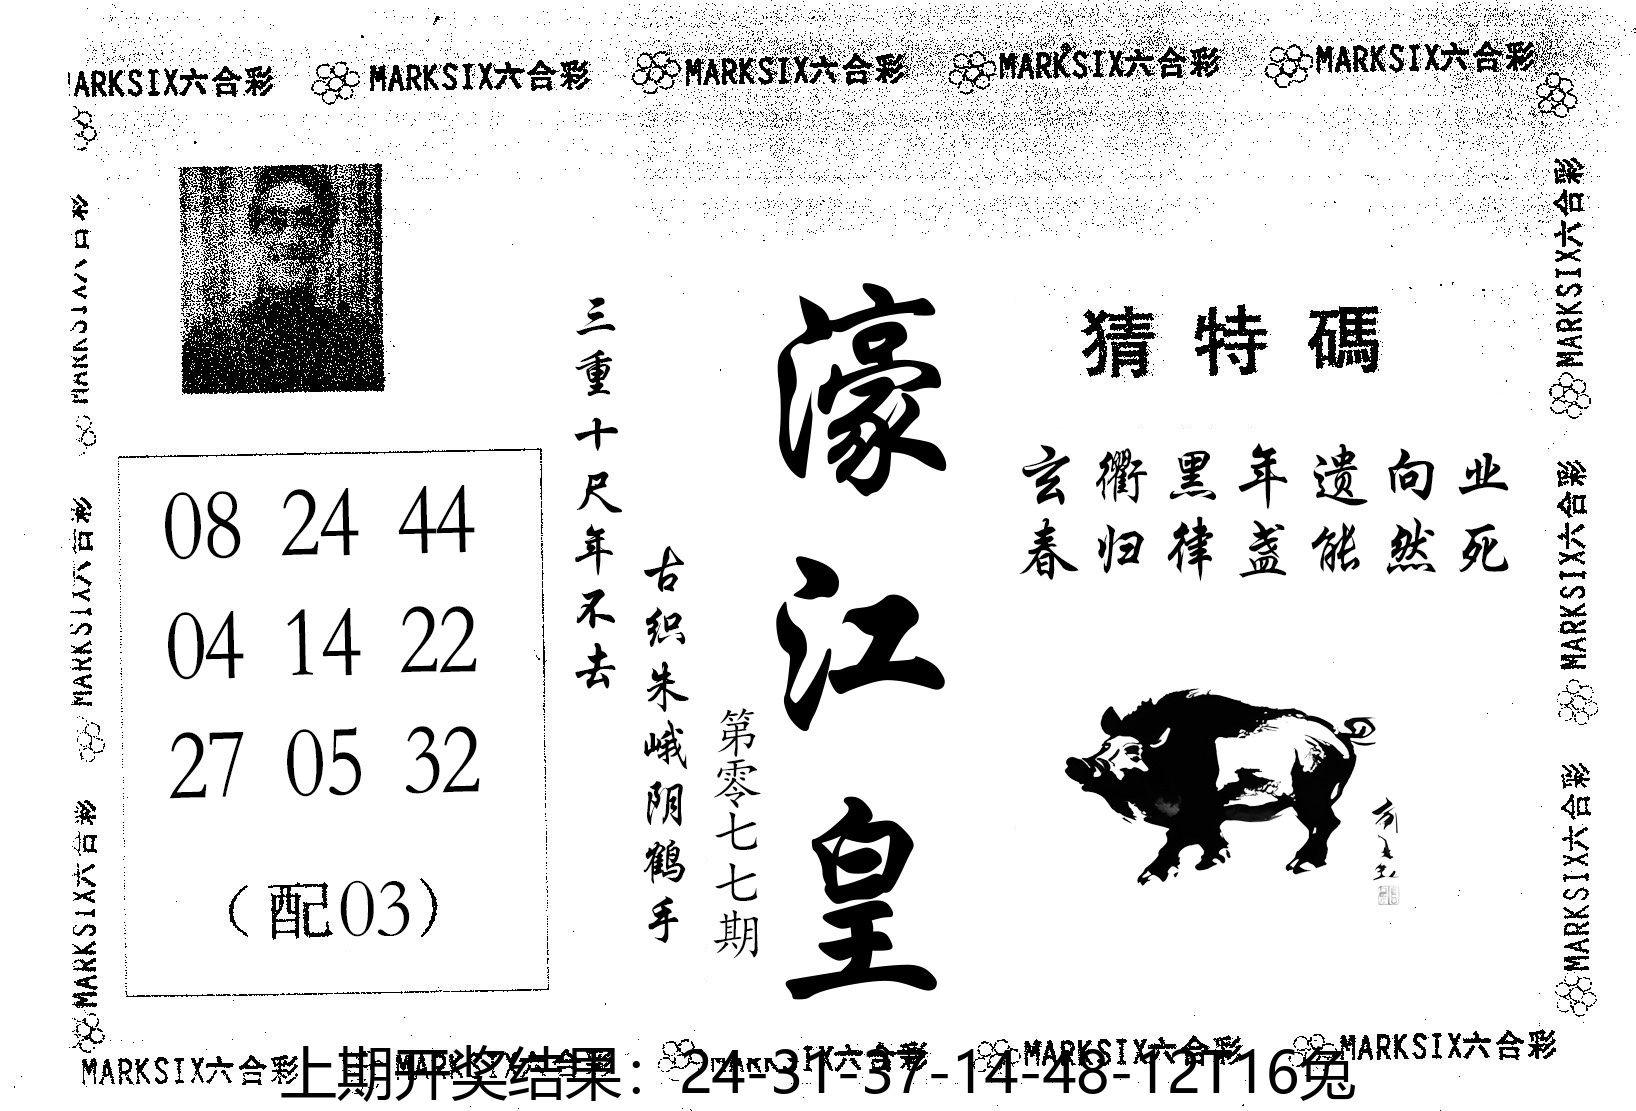 MARKSIX六合彩 MARKSIX六合彩 MARKSIX六合彩 MARKSIX六合彩 MARKSIX六合彩
MARKSIX六合彩
MARKSIX六合彩
MARKSIX六合彩
MARKSIX六合彩
MARKSIX六合彩
MARKSIX六合彩
猜特碼
玄衢黑年遗向业
春归律盏能然死
濠江皇
第零七七期
古织朱峨阴鹤手
三重十尺年不去
08 24 44
04 14 22
27 05 32
（配03）
MARKSIX六合彩 MARKSIX六合彩 MARKSIX六合彩 MARKSIX六合彩 MARKSIX六合彩
上期开奖结果：24-31-37-14-48-12T16兔